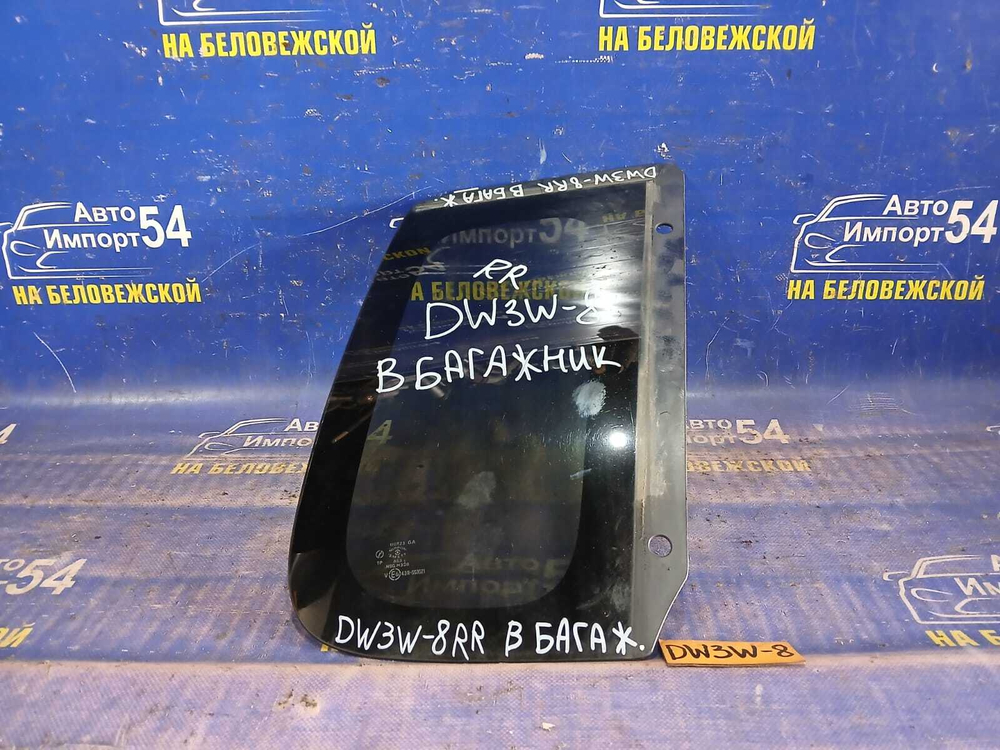 НА БЕЛОВЕЖСКОЙ
НА БЕЛОВЕЖСКОЙ
DW3W-8RR В БАГАЖ.
Авто
Импорт 54
НА БЕЛОВЕЖСКОЙ
Авто
Импорт 54
НА БЕЛОВЕЖСКОЙ
Импорт 54
А БЕЛОВЕЖСКОЙ
RR
DW3W-8
В БАГАЖНИК
Авто
Импорт
НА БЕЛОВЕЖСКОЙ
54
Импорт 54
БЕЛОВЕЖСКОЙ
DW3W-8RR В БАГАЖ.
DW3W-8